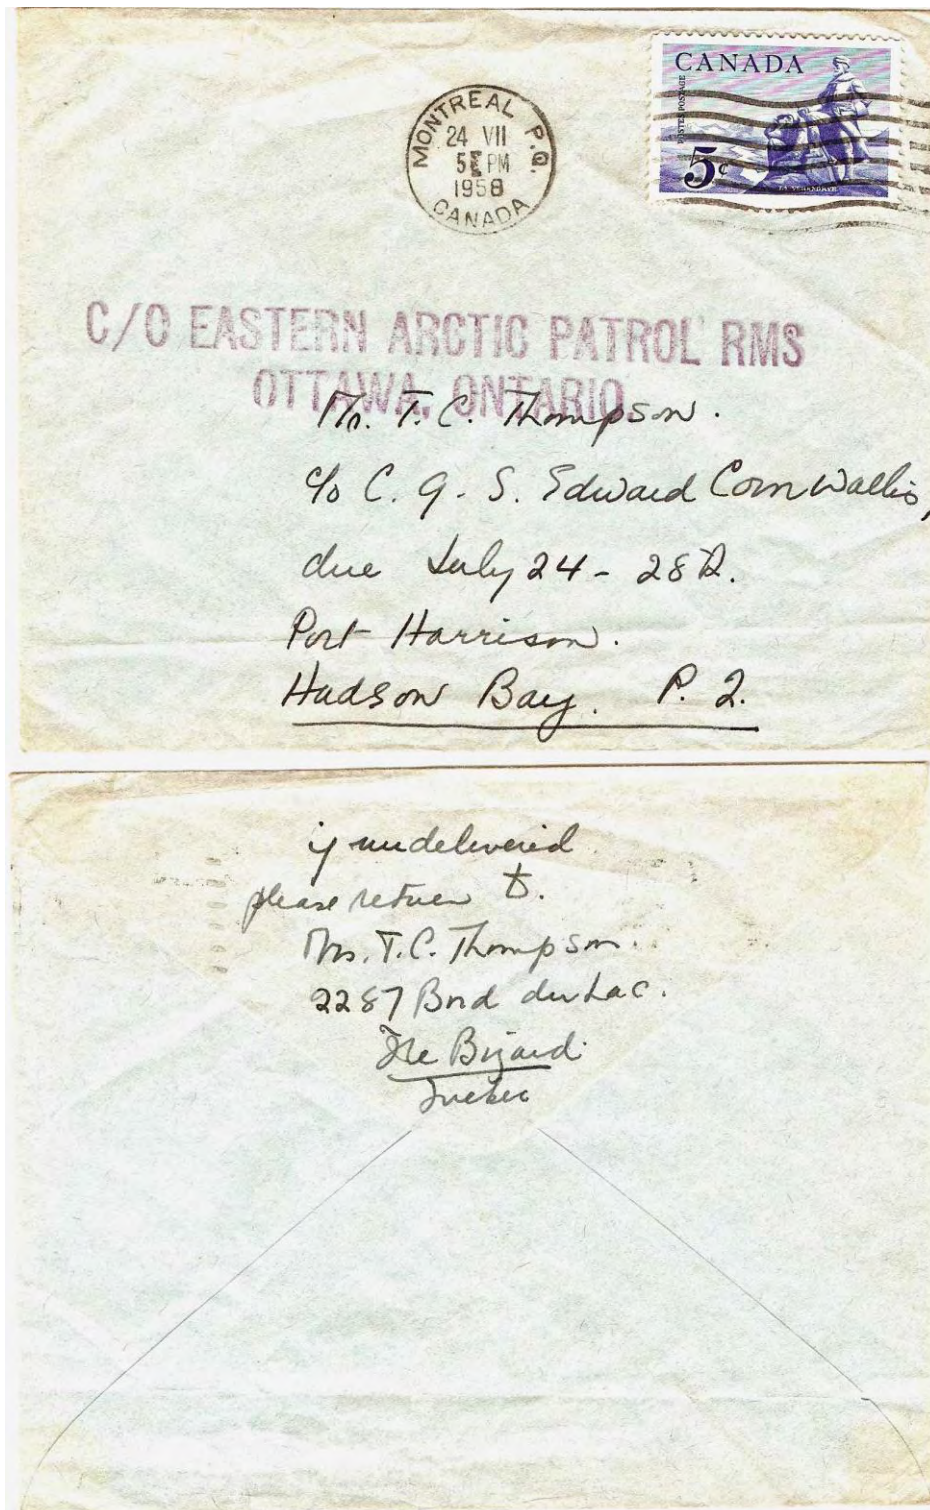 CANADA
POSTES POSTAGE
5¢
LA VERENDRYE
MONTREAL P.Q.
24 VII
5 PM
1958
CANADA
C/O EASTERN ARCTIC PATROL RMS
OTTAWA, ONTARIO.
Mr. T. C. Thompson.
c/o C. G. S. Edward CornWallis,
due July 24 - 28th.
Port Harrison.
Hudson Bay. P. Q.
if undelivered
please return to.
Mrs. T. C. Thompson.
2287 Bord du Lac.
Ile Bizard.
Quebec